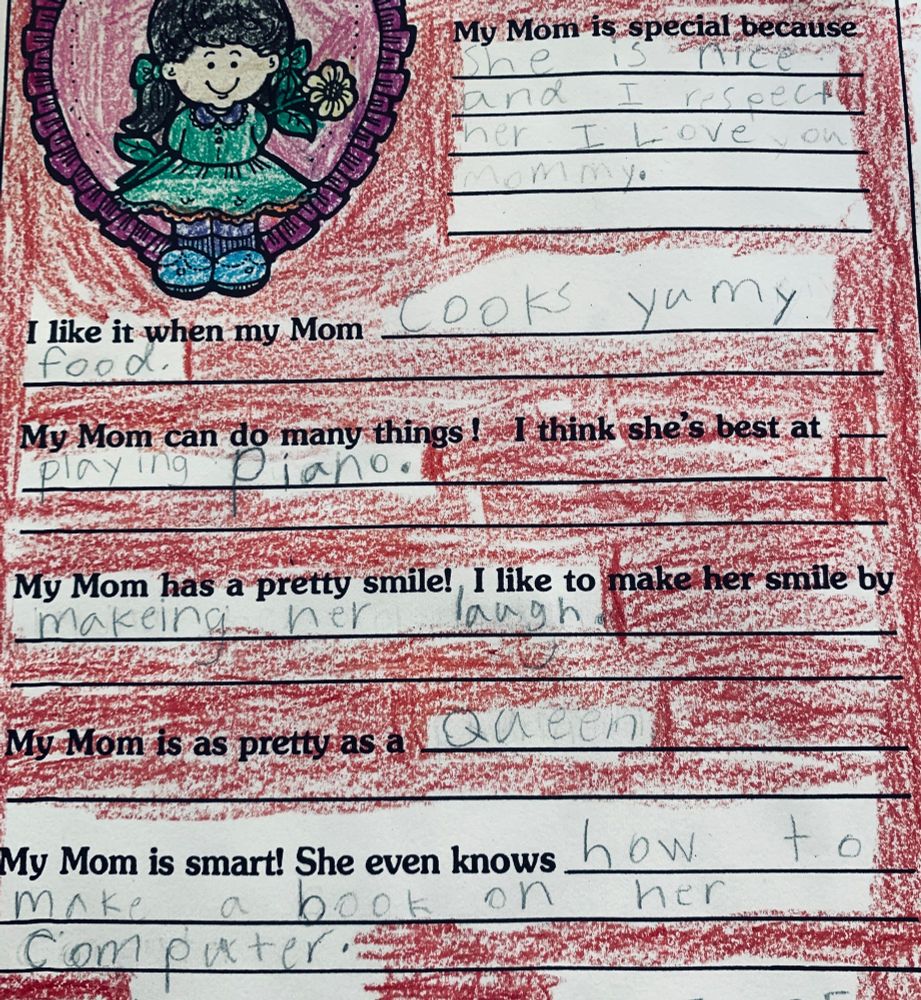 My Mom is special because
She is nice
and I respect
her I Love you
mommy.
I like it when my Mom cooks yumy
food.
My Mom can do many things! I think she's best at
playing piano.
My Mom has a pretty smile! I like to make her smile by
makeing her laugh.
My Mom is as pretty as a Queen
My Mom is smart! She even knows how to
make a book on her
computer.